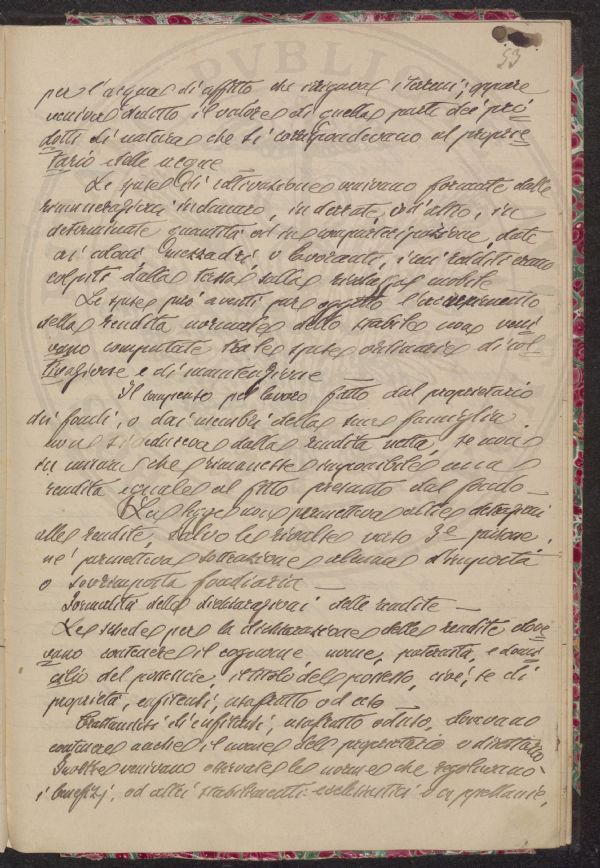 53
per l'acqua di affitto che irrigava i terreni; oppure
veniva dedotto il valore di quella parte dei pro
dotti di natura che si corrispondevano al proprie
tario delle acque
Le spese di coltivazione venivano formate dalle
rimunerazioni in danaro, in derrate, od altro, in
determinate quantità od in compartecipazione, date
ai coloni mezzadri o lavoranti, i cui redditi erano
colpiti dalla tassa sulla ricchezza mobile
Le spese però aventi per oggetto l'incremento
della rendita normale dello stabile non veni
vano computate tra le spese ordinarie di col
tivazione e di manutenzione
Il compenso pel lavoro fatto dal proprietario
dei fondi, o dai membri della sua famiglia
non si deduceva dalla rendita netta, se non
in misura che rimanesse imponibile una
rendita eguale al fitto presunto dal fondo —
La legge non permetteva altre detrazioni
alle rendite, salvo le rivalse verso 3e persone,
né permetteva sottrazione alcuna d'imposta
o sovrimposta fondiaria —
Formalità delle dichiarazioni delle rendite —
Le schede per la dichiarazione delle rendite dove
vano contenere il cognome nome, paternità, e domi
cilio del possessore, il titolo del possesso, cioè, se di
proprietà, enfiteusi, usufrutto od uso —
Trattandosi di enfiteusi, usufrutto od uso, dovevano
contenere anche il nome del proprietario o direttario
Inoltre venivano osservate le norme che regolavano
i benefizj, od altri stabilimenti ecclesiastici o cappellanie,